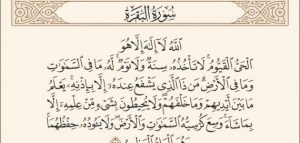 سُورَةُ البَقَرَةِ
اللَّهُ لَا إِلَٰهَ إِلَّا هُوَ
الْحَيُّ الْقَيُّومُ لَا تَأْخُذُهُ سِنَةٌ وَلَا نَوْمٌ لَهُ مَا فِي السَّمَٰوَٰتِ
وَمَا فِي الْأَرْضِ مَنْ ذَا الَّذِي يَشْفَعُ عِنْدَهُ إِلَّا بِإِذْنِهِ يَعْلَمُ
مَا بَيْنَ أَيْدِيهِمْ وَمَا خَلْفَهُمْ وَلَا يُحِيطُونَ بِشَيْءٍ مِنْ عِلْمِهِ إِلَّا
بِمَا شَاءَ وَسِعَ كُرْسِيُّهُ السَّمَٰوَٰتِ وَالْأَرْضَ وَلَا يَئُودُهُ حِفْظُهُمَا